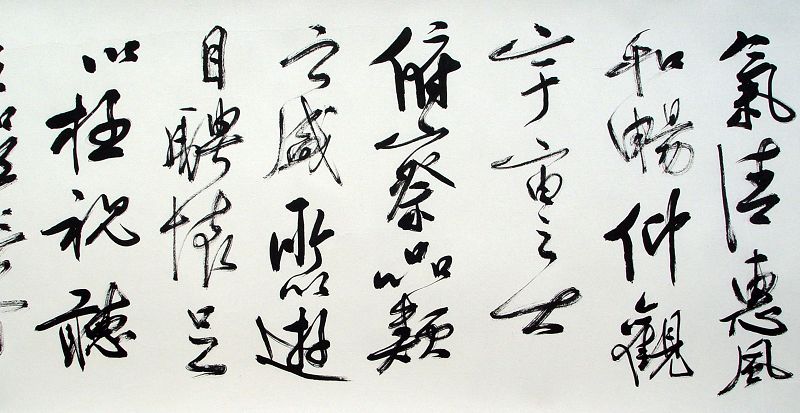 氣清惠風
和暢仰觀
宇宙之大
俯察品類
之盛所以遊
目騁懷足
以極視聽